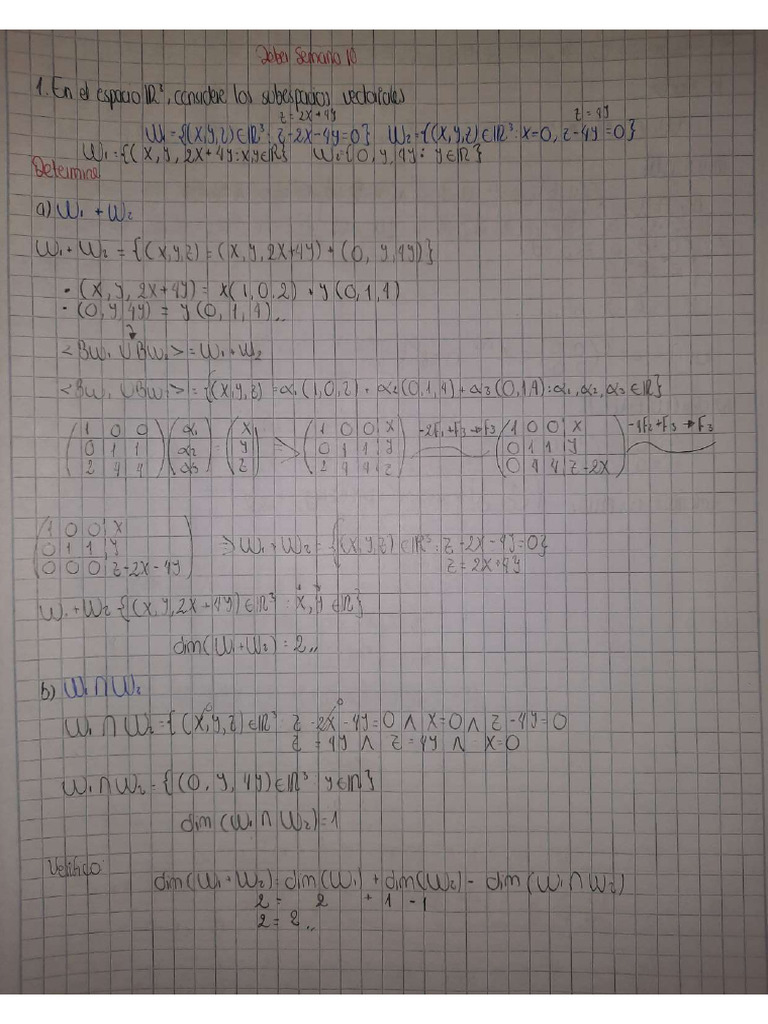 Deber Semana 10
1. En el espacio ℝ³, considere los subespacios vectoriales
z=2x+4y z=4y
W₁={(x,y,z)∈ℝ³: z-2x-4y=0} W₂={(x,y,z)∈ℝ³: x=0, z-4y=0}
W₁={(x, y, 2x+4y: x,y∈ℝ} W₂{0, y, 4y: y∈ℝ}
Determine
a) W₁ + W₂
W₁+W₂ = {(x,y,z) = (x, y, 2x+4y) + (0, y, 4y)}
• (x, y, 2x+4y) = x(1,0,2) + y(0,1,4)
• (0, y, 4y) = y(0, 1, 4)..
<BW₁ ∪ BW₂> = W₁+W₂
<BW₁ ∪ BW₂> = {(x,y,z) = α₁(1,0,2) + α₂(0,1,4) + α₃(0,1,4): α₁, α₂, α₃ ∈ℝ}
(1 0 0) (α₁) (x) (1 0 0 | x) -2F₁+F₃→F₃ (1 0 0 | x) -4F₂+F₃→F₃
(0 1 1) (α₂) = (y) ⇒ (0 1 1 | y) (0 1 1 | y)
(2 4 4) (α₃) (z) (2 4 4 | z) (0 4 4 | z-2x)
(1 0 0 | x)
(0 1 1 | y) ⇒ W₁+W₂ = {(x,y,z) ∈ℝ³: z-2x-4y=0}
(0 0 0 | z-2x-4y) z=2x+4y
W₁+W₂ {(x,y,2x+4y) ∈ℝ³: x,y ∈ℝ}
dim(W₁+W₂) = 2..
b) W₁∩W₂
0 0
W₁∩W₂ = {(x,y,z)∈ℝ³: z-2x-4y=0 ∧ x=0 ∧ z-4y=0
z=4y ∧ z=4y ∧ x=0
W₁∩W₂ = {(0, y, 4y)∈ℝ³ y∈ℝ}
dim(W₁∩W₂)=1
Verifico:
dim(W₁+W₂) = dim(W₁) + dim(W₂) - dim(W₁∩W₂)
2 = 2 + 1 - 1
2 = 2..